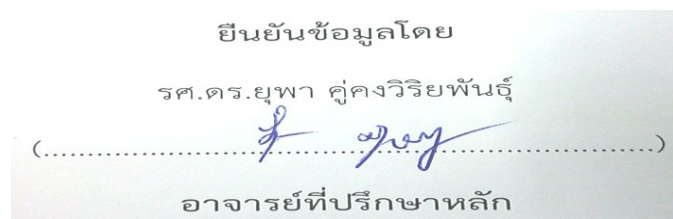 ยืนยันข้อมูลโดย
รศ.ดร.ยุพา คู่คงวิริยพันธุ์
(............................................................................)
อาจารย์ที่ปรึกษาหลัก